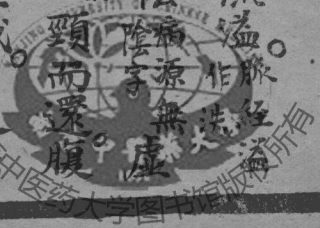 溢脈經溢作洗
病源無陰字虛
頸而還。腹
中医药大学图书馆版权所有